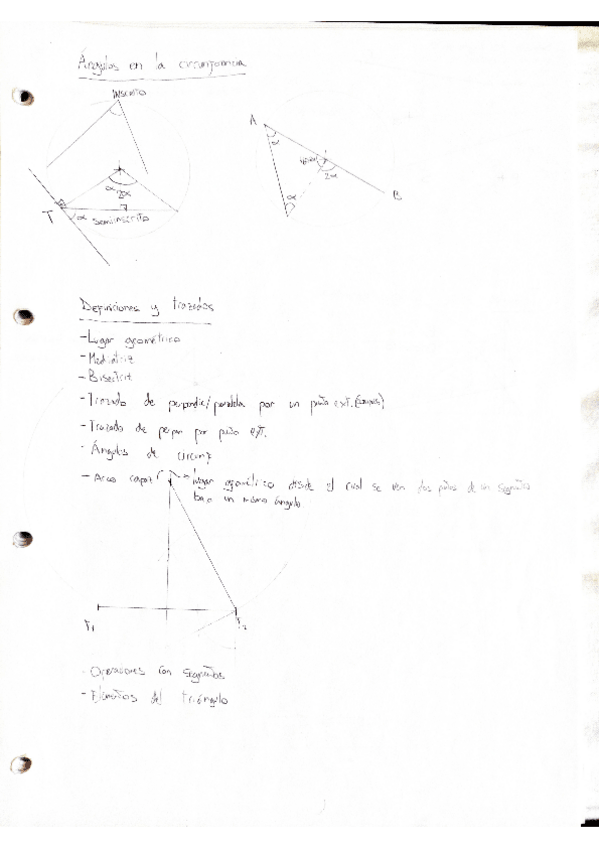 Ángulos en la circunferencia
INSCRITO
A
α
2α
T
α
semiinscrito
2α
α
Definiciones y trazados
- Lugar geométrico
- Mediatriz
- Bisectriz
- Trazado de perpendic/paralela por un punto ext.
- Trazado de perpen por punto ext.
- Ángulos de circunf
- Arco capaz → lugar geométrico desde el cual se ven dos puntos de un segmento
bajo un mismo ángulo
- Operaciones con segmentos
- Elementos del triángulo